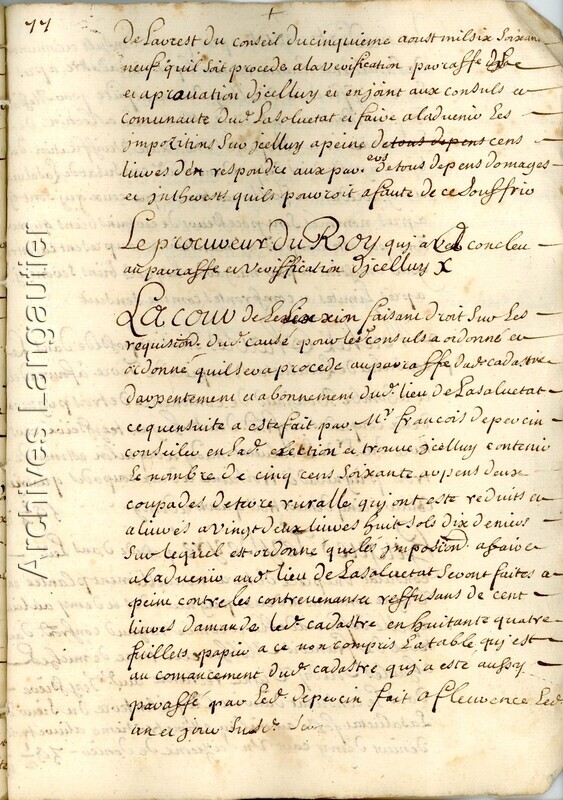 77
de Larrest du conseil ducinquieme aoust mil six soixan
neuf quil soit procede a la veriffication parraffe
et aprauation djcelluy et enjoint aux consuls et
comunaute dud. Lasaluetat et faire aladuenir Les
jmpozitions Sur jcelluy apeine de tous depens cens
liures den respondre aux par. eus detous depens domages
et jntherests quils pouroit afaute de ce Souffrir
Le procuveur du Roy quj a concleu
au parraffe et veriffication djcelluy
La cour de Lelexion faisant droit Sur Les
requision. dud. cause pour les consuls a ordonné et
ordonné quil sera procede au parraffe dud. cadastre
darpentement et abonnement dud. lieu de Lasaluetat
ce quensuite a este fait par Mr. francois deperein
conseiler en Lad. election et trouve jcelluy contenir
Le nombre de cinq cens Soixante arpens deux
coupades de terre ruralle quj ont este reduits et
aliures a vingt deux liures huit sols dix deniers
Sur lequel est ordonne que les jmposion. afaire
aladuenir aud. lieu de Lasaluetat Seront faites a
peine contre les contrevenans et reffusans de cent
liures damande led. cadastre en huitante quatre
fuillets papier a ce non compris La table quj est
au comancement dud. cadastre quj a este aussy
paraffé par Led. deperein fait a fleurence Les
an et jour Susd.
Archives Langautier